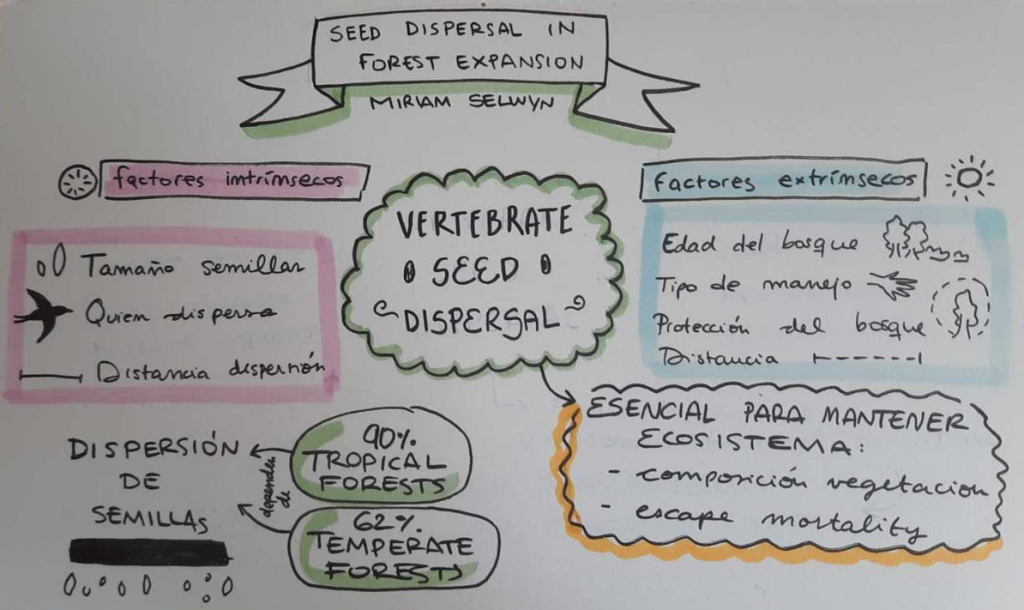 SEED DISPERSAL IN
FOREST EXPANSION
MIRIAM SELWYN
factores intrínsecos
Tamaño semillas
Quien dispersa
Distancia dispersión
VERTEBRATE
SEED
DISPERSAL
Factores extrínsecos
Edad del bosque
Tipo de manejo
Protección del bosque
Distancia
ESENCIAL PARA MANTENER
ECOSISTEMA:
- composición vegetacion
- escape mortality
DISPERSIÓN
DE
SEMILLAS
dependen
de
90%
TROPICAL
FORESTS
62%
TEMPERATE
FORESTS